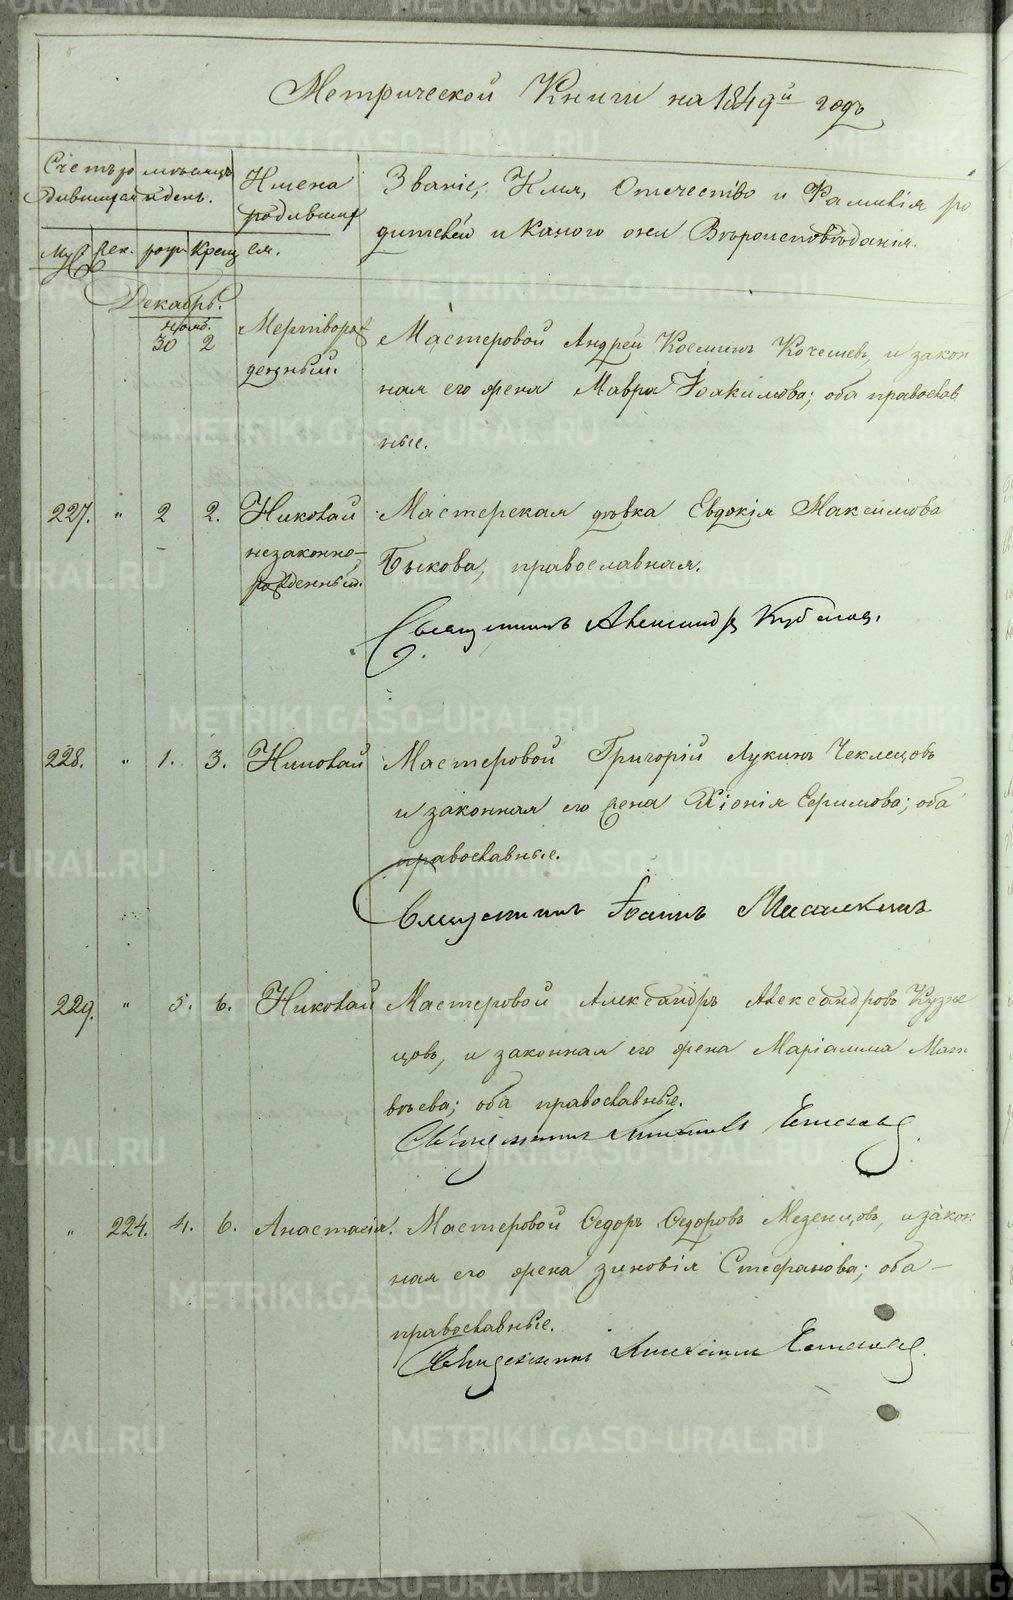 Метрической Книги на 1849й годъ
Счетъ ро мѣсяцъ Имена Званіе, Имя, Отечество и Фамилія ро
дившихся и день. родивших дителей и какого они Вѣроисповѣданія.
муж жен. рож. крещ ся.
Декабрь.
нояб.
30 2 Мертворож Мастеровой Андрей Козминъ Кочешевъ, и закон
денный. ная его жена Мавра Іоакимова; оба православ
ные.
227. " 2 2. Николай Мастерская дѣвка Евдокія Максимова
незаконно- Быкова, православная.
рожденный.
Священникъ Александръ
228. " 1. 3. Николай Мастеровой Григорій Лукинъ Чеклецовъ
и законная его жена Хіонія Ефимова; оба
православные.
Священникъ Іоаннъ
229. " 5. 6. Николай Мастеровой Александръ Александровъ Кузне
цовъ, и законная его жена Маріамна Мат
вѣева; оба православные.
Священникъ
" 224. 4. 6. Анастасія. Мастеровой Ѳедоръ Ѳедоровъ Мезенцовъ, и закон
ная его жена Зиновія Стефанова; оба
православные.
Священникъ
METRIKI.GASO-URAL.RU